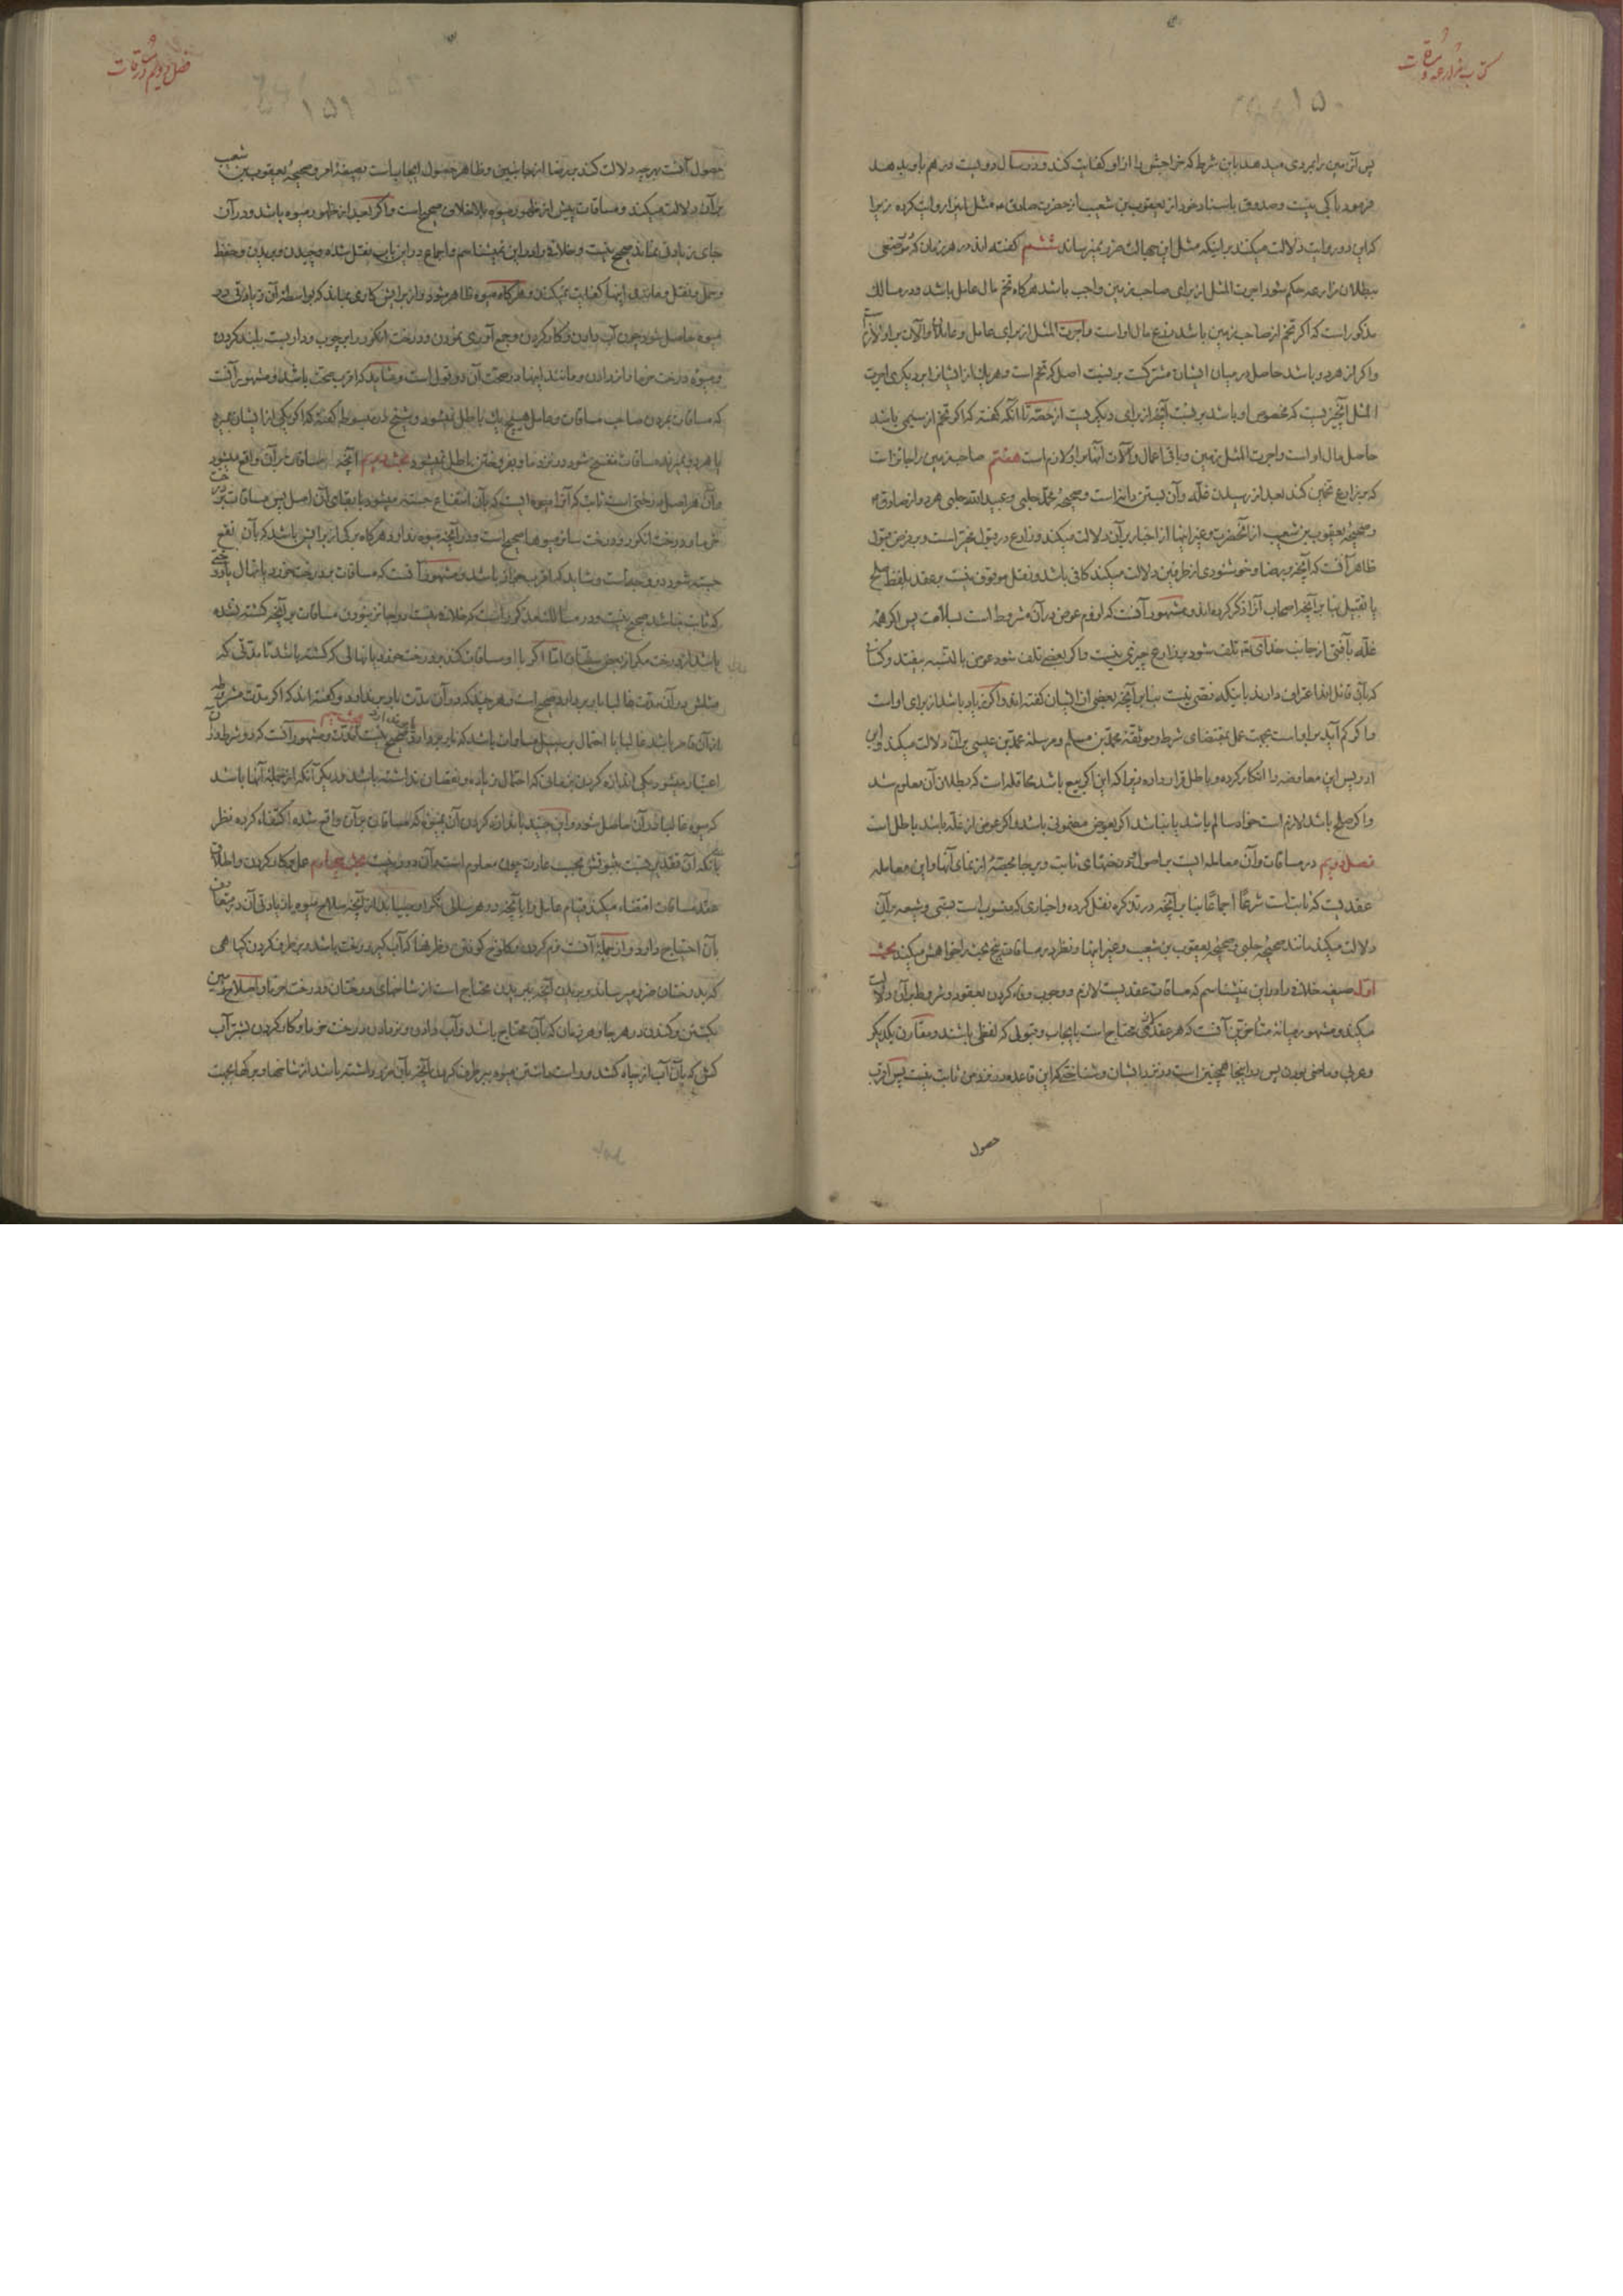 کتاب مزارعه و مساقات
۱۵۰
پس آن زمین را بمردی میدهد باین شرط که خراجش را از او کفایت کند و در سال دویست درهم باو بدهد
فرمود باکی نیست و صدوق باسناد خود از یعقوب بن شعیب از حضرت صادق ع مثل این را روایت کرده زیرا
که این دو روایت دلالت میکند بر اینکه مثل این جهالت ضرر نمیرساند ششم گفته اند در هر زمان که موضعی
ببطلان مزارعه حکم شود اجرت المثل از برای صاحب زمین واجب باشد هرگاه تخم مال عامل باشد و در مسالک
مذکور است که اگر تخم از صاحب زمین باشد زرع مال او است و اجرت المثل از برای عامل و عاملها و آلات بر او لازم است
و اگر از هر دو باشد حاصل در میان ایشان مشترکست بر نسبت اصل که تخم است و هر یک از ایشان را بر دیگری اجرت
المثل آنچیزیست که مخصوص او باشد بر نسبت آنچه از برای دیگریست از حصه تا آنکه گفته که اگر تخم از سیمی باشد
حاصل مال او است و اجرت المثل زمین و باقی اعمال و آلات آنها بر او لازم است هفتم صاحب زمین را جایز است
که بر زارع تخمین کند بعد از رسیدن غله و آن بستن دانه است و صحیحهٔ محمد حلبی و عبید الله حلبی هر دو از صادق ع
و صحیحهٔ یعقوب بن شعیب از آنحضرت و غیر اینها از اخبار بر آن دلالت میکند و زارع در قبول مخیر است و بر فرض قبول
ظاهر آنست که آنچه بر رضا و خوشنودی از طرفین دلالت میکند کافی باشد و نقل موقوف نیست بر عقد بلفظ صلح
یا تقبیل بنا بر آنچه اصحاب آنرا ذکر کرده اند و مشهور آنست که لزوم عوض در آن مشروط است بسلامت پس اگر همه
غله بآفتی از جانب خدای تع تلف شود بر زارع چیزی نیست و اگر بعضی تلف شود عوض بالنسبه بیفتد و کسانی
که بآن قائل اند اعتراف دارند باینکه نصی نیست بنا بر آنچه بعضی از ایشان گفته اند و اگر زیاد باشد از برای او است
و اگر کم آید بر او است بجهت عمل بمقتضای شرط و موثقهٔ محمد بن مسلم و مرسلهٔ محمد بن عیسی بر آن دلالت میکند و ابن
ادریس این معامله را انکار کرده و باطل قرار داده زیرا که این اگر بیع باشد محاقله است که بطلان آن معلوم شد
و اگر صلح باشد لازم است خواه سالم باشد یا نباشد اگر بعوض مضمونی باشد و اگر عوض از غله باشد باطل است
فصل دویم در مساقات و آن معامله ایست بر اصول درختهای ثابت و برجا بحصهٔ از نمای آنها و این معامله
عقدیست که ثابت است شرعًا اجماعًا بنا بر آنچه در تذکره نقل کرده و اخباری که منسوب است بسنی و شیعه بر آن
دلالت میکند مانند صحیحهٔ حلبی و صحیحهٔ یعقوب بن شعیب و غیر اینها و نظر در مساقات پنج بحث را خواهش میکند بحث
اول صیغه خلاف را در این نمیشناسم که مساقات عقدیست لازم و وجوب وفاء کردن بعقود و شروط بر آن دلالت
میکند و مشهور میانهٔ متأخرین آنست که هر عقد لازمی محتاج است بایجاب و قبولی که لفظی باشند و مقارن یکدیگر
و عربی و ماضی بودن پس در اینجا همچنین است در نزد ایشان و شناختی که این قاعده در نزد من ثابت نیست پس اقرب
حصول
فصل دویم در مساقات
۱۵۱
حصول آنست بهر چه دلالت کند بر رضا از جانبین و ظاهر حصول ایجاب است بصیغهٔ امر و صحیحهٔ یعقوب بن شعیب
بر آن دلالت میکند و مساقات پیش از ظهور میوه بلاخلاف صحیح است و اگر بعد از ظهور میوه باشد و در آن
جای زیادتی نماند صحیح نیست و خلافی را در این نمیشناسم و اجماع در این باب نقل شده و چیدن و بریدن و حفظ
و حمل و نقل و مانند اینها کفایت نمیکند و هرگاه میوه ظاهر شود و از برایش کاری بماند که بواسطهٔ آن زیادتی در
میوه حاصل شود چون آب دادن و کار کردن و جمع آوری نمودن و درخت انگور را بر چوب و داربست بلند کردن
و میوه درخت خرما را نر دادن و مانند اینها در صحت آن دو قول است و شاید که اقرب صحت باشد و مشهور آنست
که مساقات بمردن صاحب مساقات و عامل هیچ یک باطل نمیشود و شیخ در مبسوط گفته که اگر یکی از ایشان بمیرد
یا هر دو بمیرند مساقات منفسخ شود در نزد ما و بفروختن باطل نمیشود بحث دویم آنچه مساقات بر آن واقع میشود
و آن هر اصل درختی است ثابت که آنرا میوه ایست که بآن انتفاع جسته میشود با بقای آن اصل پس مساقات بر درخت
خرما و درخت انگور و درخت سائر میوها صحیح است و در آنچه میوه ندارد هرگاه برگی از برایش باشد که بآن نفع
جسته شود دو وجه است و شاید که اقرب جواز باشد و مشهور آنست که مساقات بر درخت خورد یا نهال یا درختی
که ثابت نباشد صحیح نیست و در مسالک مذکور است که خلاف نیست در جایز نبودن مساقات بر آنچه کشته نشده
باشد از درخت مگر از بعض سنیان اما اگر با او مساقات کند بر درخت خورد یا نهالی که کشته باشد تا مدتی که
مثلش در آن مدت غالبا بار بردارد صحیح است و هر چند که در آن مدت بار بر ندارد و گفته اند که اگر مدت مشروطه
از آن قاصر باشد غالبا یا احتمال بر سبیل مساوات باشد که بار بردارد یا بر ندارد صحیح نیست بحث سیم مدت و مشهور آنست که دو شرط در آن
اعتبار میشود یکی اندازه کردن بزمانی که احتمال زیاده و نقصان نداشته باشد و دیگر آنکه از جملهٔ آنها باشد
که میوه غالبا در آن حاصل شود و ابن جنید باندازه کردن آن بمیوهٔ که مساقات بر آن واقع شده اکتفاء کرده نظر
بآنکه آن نقد بر نسبت بثبوتش بحسب عادت چون معلوم است و آن دور نیست بحث چهارم عمل و کار کردن و اطلاق
عقد مساقات اقتضاء میکند قیام عامل را بآنچه در هر سالی مکرر میباید از آنچه صلاح میوه یا زیادتی آن در متعارف
بآن احتیاج دارد و از جملهٔ آنست نرم کردن
که بدرختان ضرر میرساند و بریدن آنچه ببریدن محتاج است از شاخهای درختان و درخت خرما و اصلاح زمین
بکشتن و کندن در هر جا و هر زمان که بآن محتاج باشد و آب دادن و نر دادن درخت خرما و کار کردن بشتر آب
کش که بآن آب از چاه کشد و راست داشتن میوه ببرطرف کردن آنچه بآن ضرر داشته باشد از شاخها و برگها بجهت